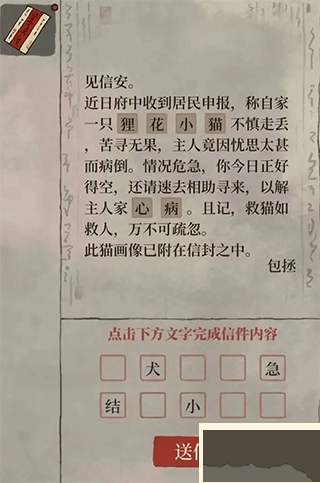 见信安。
近日府中收到居民申报，称自家
一只狸花小猫不慎走丢
，苦寻无果，主人竟因忧思太甚
而病倒。情况危急，你今日正好
得空，还请速去相助寻来，以解
主人家心病。且记，救猫如
救人，万不可疏忽。
此猫画像已附在信封之中。
包拯
点击下方文字完成信件内容
犬 急
结 小
送